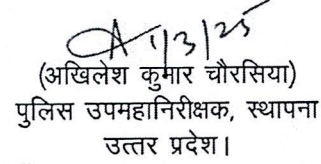 1/3/25
(अखिलेश कुमार चौरसिया)
पुलिस उपमहानिरीक्षक, स्थापना
उत्तर प्रदेश।